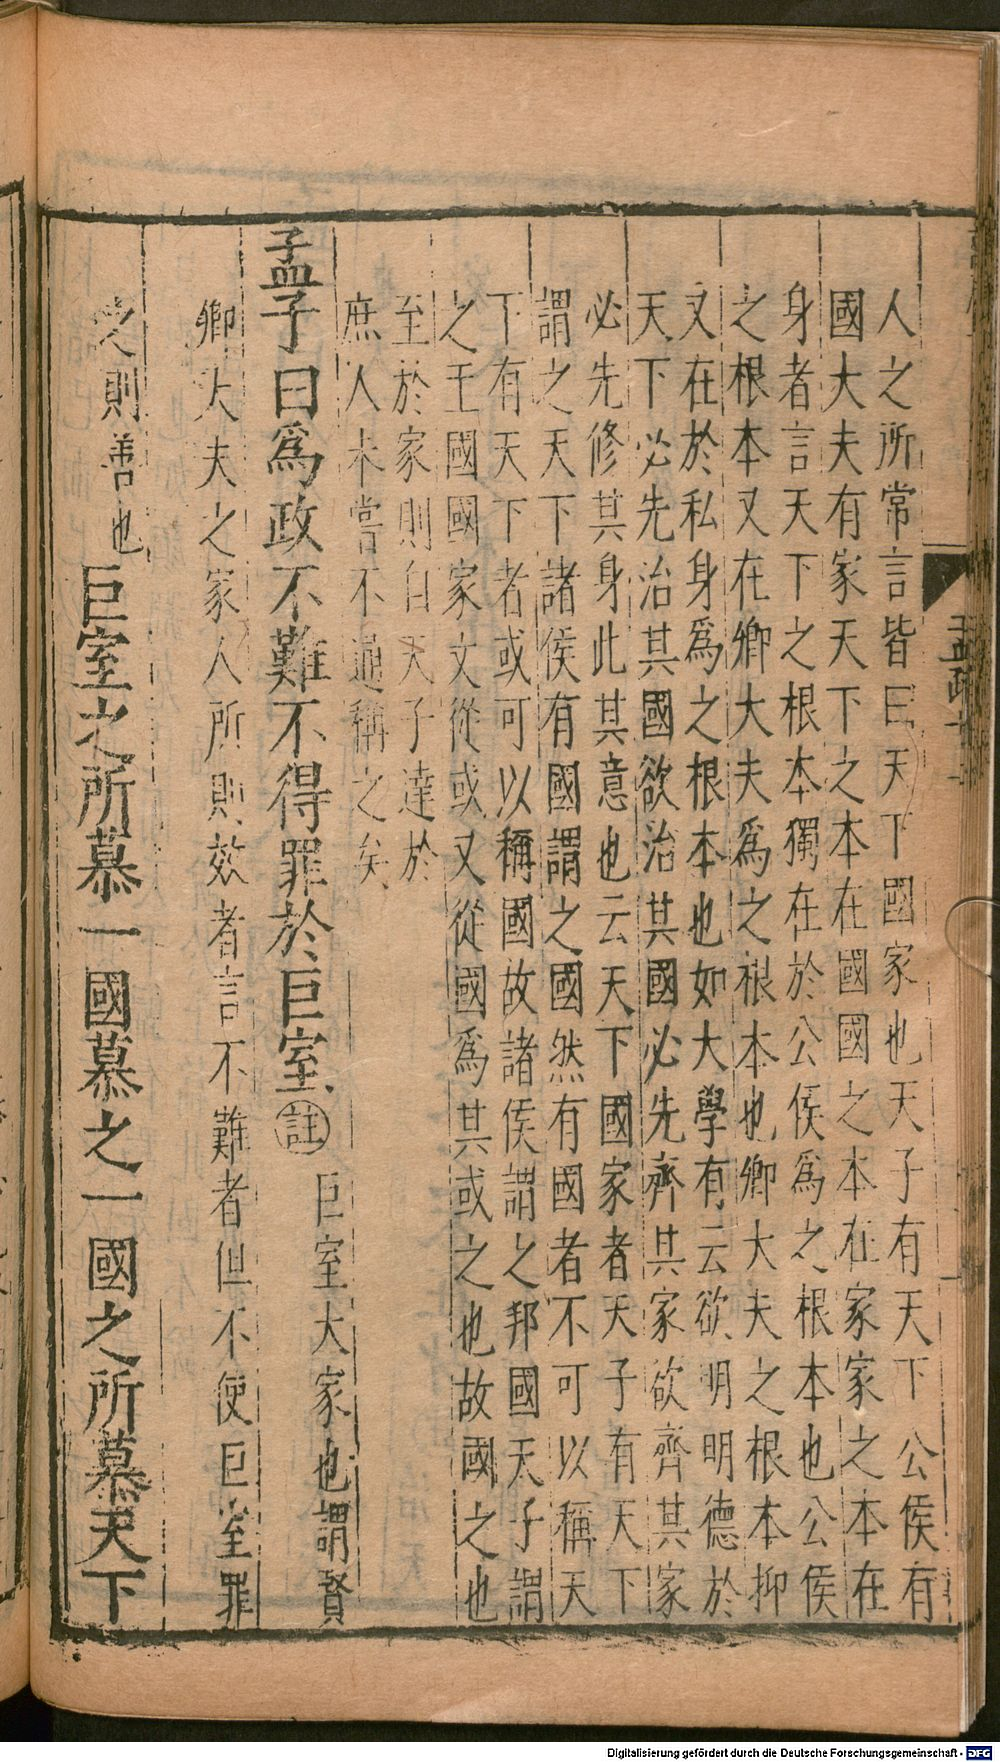 人之所常言皆曰天下國家也天子有天下公侯有
國大夫有家天下之本在國國之本在家家之本在
身者言天下之根本獨在於公侯爲之根本也公侯
之根本又在卿大夫爲之根本也卿大夫之根本抑
又在於私身爲之根本也如大學有云欲明明德於
天下必先治其國欲治其國必先齊其家欲齊其家
必先修其身此其意也云天下國家者天子有天下
謂之天下諸侯有國謂之國然有國者不可以稱天
下有天下者或可以稱國故諸侯謂之邦國天子謂
之王國國家文從或又從國爲其或之也故國之也
至於家則自天子達於
庶人未嘗不通稱之矣
孟子曰爲政不難不得罪於巨室註巨室大家也謂賢
卿大夫之家人所則效者言不難者但不使巨室罪
之則善也巨室之所慕一國慕之一國之所慕天下
孟疏十
Digitalisierung gefördert durch die Deutsche Forschungsgemeinschaft - DFG